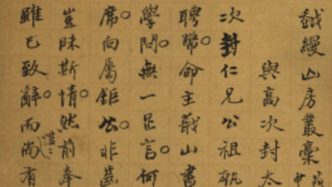 越縵山房叢稾
與高次封太
次封仁兄公祖執
聘幣命主蕺山書
學問無一足言何
席向屬鉅公非蓝
豈昧斯情然前奉
雖已致辭而尚有